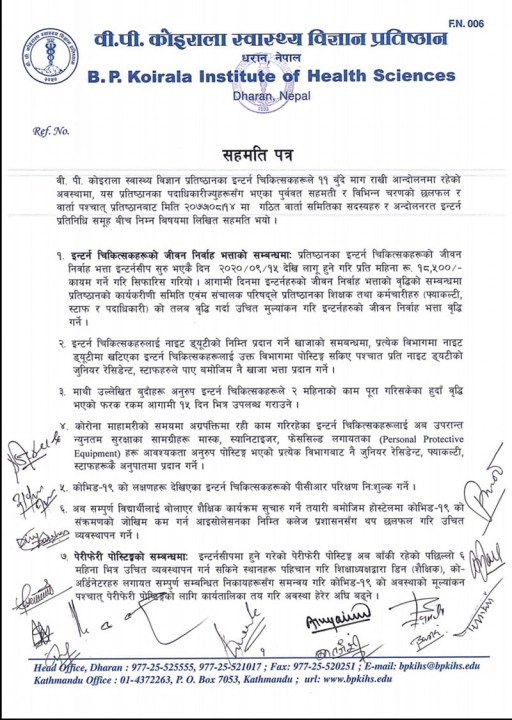 F.N. 006
वी.पी. कोइराला स्वास्थ्य विज्ञान प्रतिष्ठान
धरान, नेपाल
B. P. Koirala Institute of Health Sciences
Dharan, Nepal
Ref. No.
सहमति पत्र
वी. पी. कोइराला स्वास्थ्य विज्ञान प्रतिष्ठानका इन्टर्न चिकित्सकहरूले ११ बुँदे माग राखी आन्दोलनमा रहेको
अवस्थामा, यस प्रतिष्ठानका पदाधिकारीज्यूहरूसँग भएका पुर्ववत सहमती र विभिन्न चरणको छलफल र
वार्ता पश्चात् प्रतिष्ठानबाट मिति २०७७।०८।१४ मा गठित वार्ता समितिका सदस्यहरु र अन्दोलनरत इन्टर्न
प्रतिनिधि समूह बीच निम्न बिषयमा लिखित सहमति भयो ।
१. इन्टर्न चिकित्सकहरूको जीवन निर्वाह भत्ताको सम्वन्धमाः प्रतिष्ठानका इन्टर्न चिकित्सकहरूको जीवन
निर्वाह भत्ता इन्टर्नसीप सुरु भएकै दिन २०२०/०९/१५ देखि लागू हुने गरि प्रति महिना रू. १८,५००/-
कायम गर्ने गरि सिफारिस गरियो । आगामी दिनमा इन्टर्नहरुको जीवन निर्वाह भत्ताको बृद्धिको सम्वन्धमा
प्रतिष्ठानको कार्यकरीणी समिति एवंम संचालक परिषद्ले प्रतिष्ठानका शिक्षक तथा कर्मचारीहरु (फ्याकल्टी,
स्टाफ र पदाधिकारी) को तलव बृद्धि गर्दा उचित मुल्यांकन गरि इन्टर्नहरुको जीवन निर्वाह भत्ता बृद्धि
गर्ने ।
२. इन्टर्न चिकित्सकहरूलाई नाइट ड्यूटीको निम्ति प्रदान गर्ने खाजाको सम्बन्धमा, प्रत्येक विभागमा नाइट
ड्यूटीमा खटिएका इन्टर्न चिकित्सकहरूलाई उक्त विभागमा पोस्टिङ्ग सकिए पश्चात प्रति नाइट ड्यूटीको
जुनियर रेसिडेन्ट, स्टाफहरुले पाए बमोजिम नै खाजा भत्ता प्रदान गर्ने ।
३. माथी उल्लेखित बुदाँहरू अनुरुप इन्टर्न चिकित्सकहरू ले २ महिनाको काम पूरा गरिसकेका हुदाँ बृद्धि
भएको फरक रकम आगामी १५ दिन भित्र उपलब्ध गराउने ।
४. कोरोना माहामरीको समयमा अग्रपक्तिमा रही काम गरिरहेका इन्टर्न चिकित्सकहरूलाई अब उपरान्त
न्युनतम सुरक्षाका सामग्रीहरू मास्क, स्यानिटाइजर, फेससिल्ड लगायतका (Personal Protective
Equipment) हरू आवश्यकता अनुरुप पोस्टिङ्ग भएको प्रत्येक विभागबाट नै जुनियर रेसिडेन्ट, फ्याकल्टी,
स्टाफहरूकै अनुपातमा प्रदान गर्ने ।
५. कोभिड-१९ को लक्षणहरु देखिएका इन्टर्न चिकित्सकहरूको पीसीआर परिक्षण निःशुल्क गर्ने ।
६. अव सम्पुर्ण विद्यार्थीलाई बोलाएर शैक्षिक कार्यक्रम सुचारु गर्ने तयारी बमोजिम होस्टेलमा कोभिड-१९ को
संक्रमणको जोखिम कम गर्न आइसोलेसनका निम्ति कलेज प्रशासनसँग थप छलफल गरि उचित
व्यवस्थापन गर्ने ।
७. पेरीफेरी पोस्टिङ्गको सम्बन्धमाः इन्टर्नसीपमा हुने गरेको पेरीफेरी पोस्टिङ्ग अब बाँकी रहेको पछिल्लो ६
महिना भित्र उव्यस्थापन गर्न सकिने स्थानहरू पहिचान गरि शिक्षाध्यक्षद्वारा डिन (शैक्षिक), को-
अर्डिनेटरहरु लगायत सम्पुर्ण सम्बन्धित निकायहरूसँग समन्वय गरि कोभिड-१९ को अवस्थाको मूल्यांकन
पश्चात् पेरीफेरी पोस्टिङ्गको लागि कार्यतालिका तय गरि अवस्था हेरेर अघि बढ्ने ।
१
Head Office, Dharan : 977-25-525555, 977-25-521017 ; Fax: 977-25-520251 ; E-mail: bpkihs@bpkihs.edu
Kathmandu Office : 01-4372263, P. O. Box 7053, Kathmandu ; url: www.bpkihs.edu